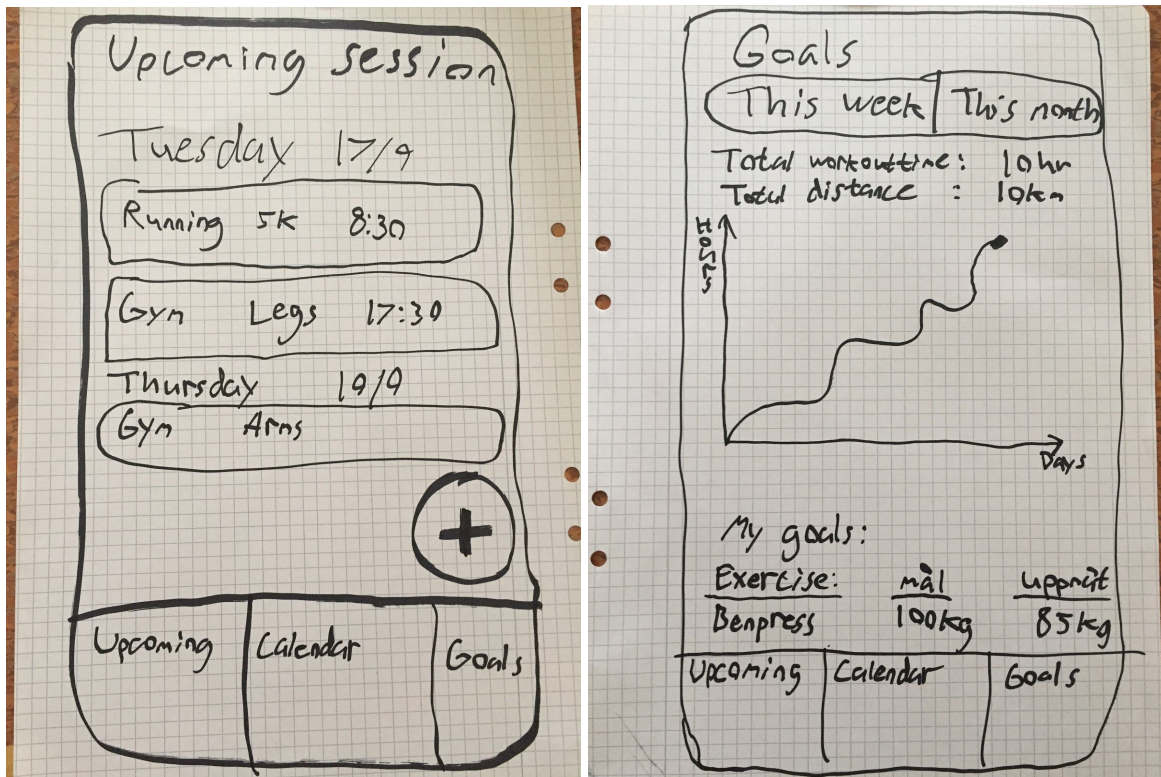 Upcoming session
Tuesday 17/9
Running 5K 8:30
Gym Legs 17:30
Thursday 19/9
Gym Arms
+
Upcoming Calendar Goals
Goals
This week This month
Total workouttime: 10hr
Total distance : 10km
Hours
Days
My goals:
Exercise: mål uppnåt
Benpress 100kg 85kg
Upcoming Calendar Goals